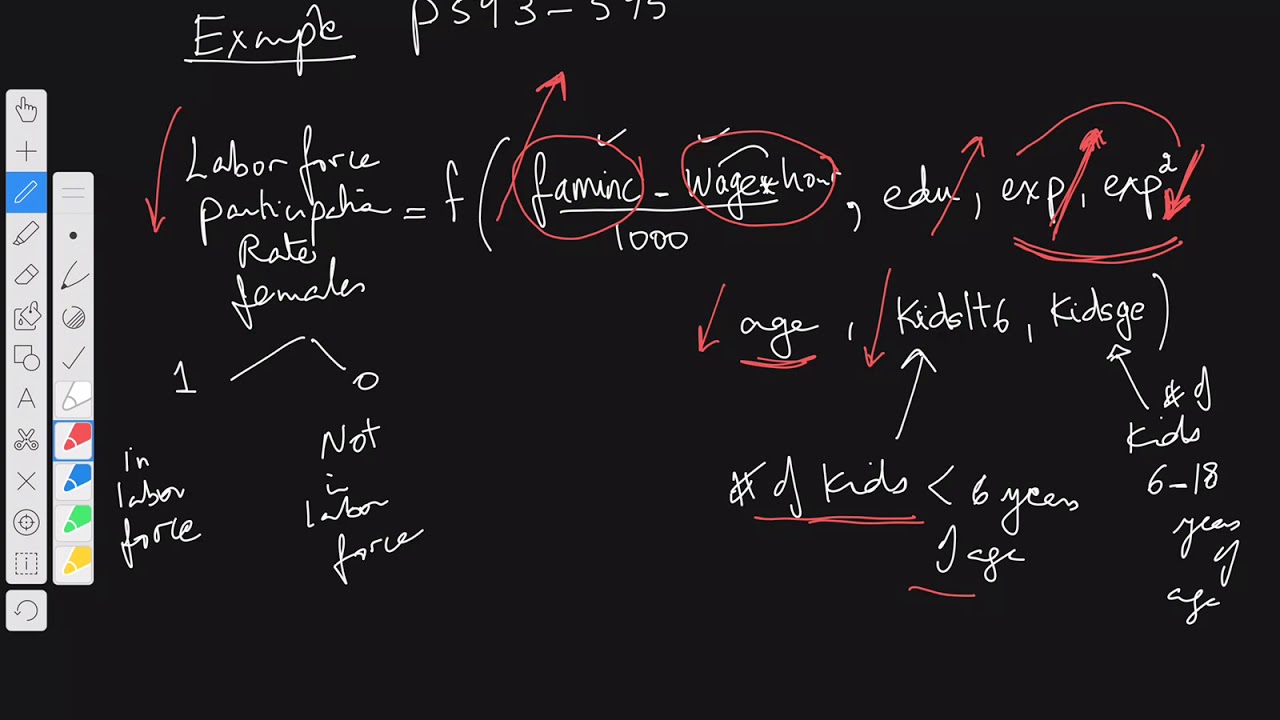 Example P593-595
Labor force
participation
Rates
females
= f( faminc - wage*hour
1000
, edu, exp, exp²
age, kidslt6, kidsge)
1 0
in
labor
force
Not
in
labor
force
# of kids < 6 years
of age
# of
kids
6-18
years
of
age
A